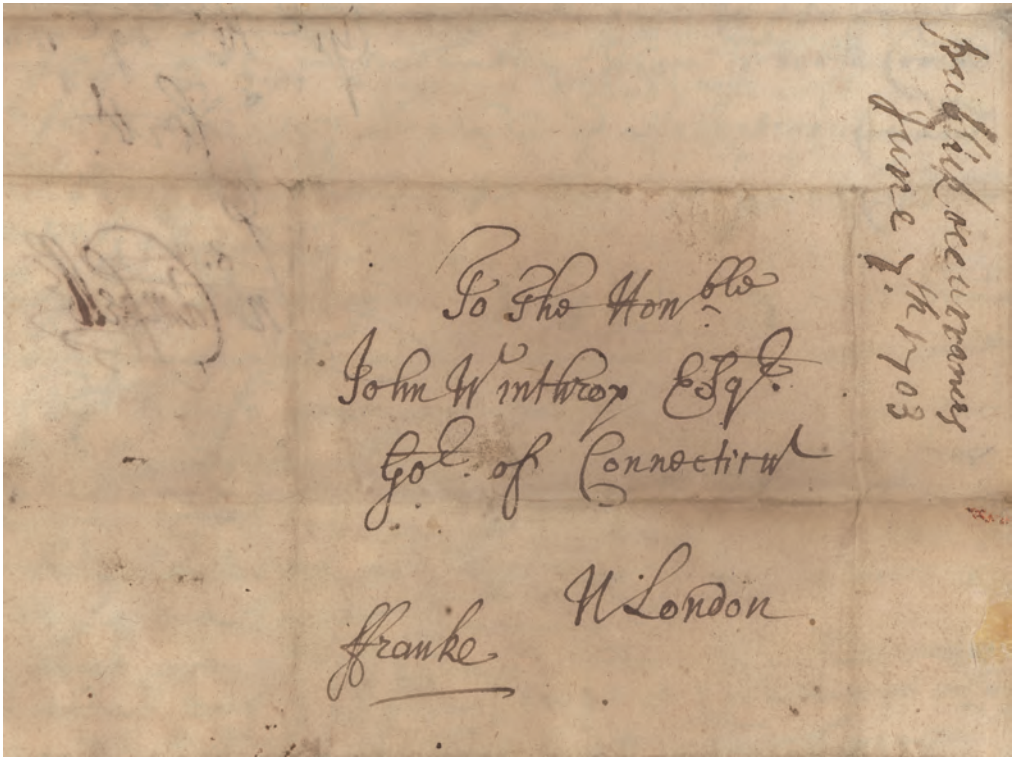 To The Hon:ble
John Winthrop Esqr.
Gor. of Connecticut
N London
ffranke
publick occurrances
June 7th 1703
Campbell